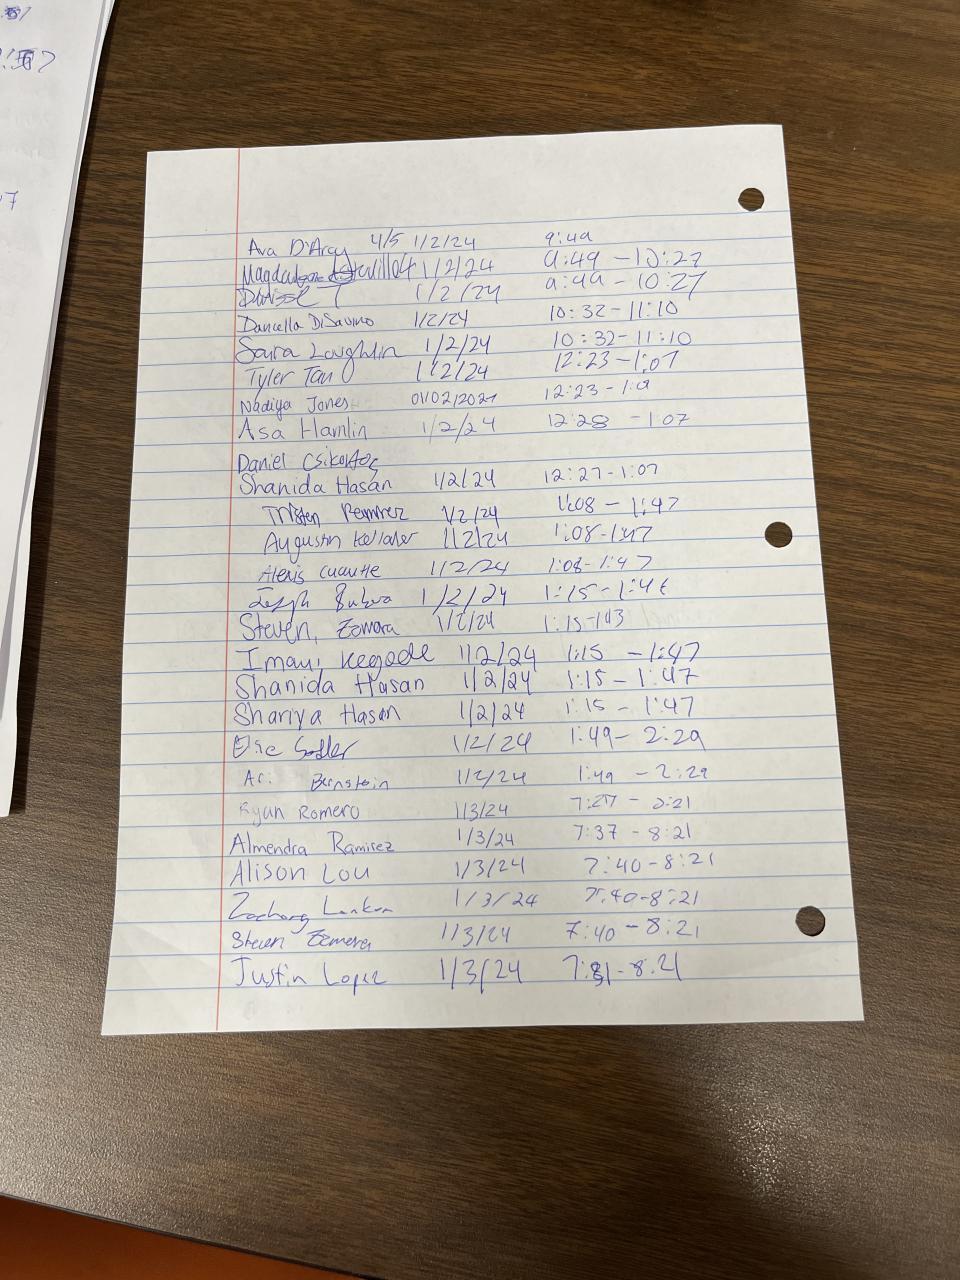 Ava D'Arcy 4/5 1/2/24 9:49
1/2/24 9:49 - 10:27
T 1/2/24 9:49 - 10:27
Dancella DiSavino 1/2/24 10:32 - 11:10
Saura Loughlin 1/2/24 10:32 - 11:10
Tyler Tan 1/2/24 12:23 - 1:07
Nadiya Jones 01/02/2024 12:23 - 
Asa Hamlin 1/2/24 12:28 - 1:07
Daniel
Shanida Hasan 1/2/24 12:27 - 1:07
Tristen Ramirez 1/2/24 1:08 - 1:47
Augustin 1/2/24 1:08 - 1:47
Alexis Cuautle 1/2/24 1:08 - 1:47
1/2/24 1:15 - 1:46
Steven, 1/2/24 1:15 -
Imani Kegode 1/2/24 1:15 - 1:47
Shanida Hasan 1/2/24 1:15 - 1:47
Shariya Hasan 1/2/24 1:15 - 1:47
1/2/24 1:49 - 2:29
Bernstein 1/2/24 1:49 - 2:29
Ryan Romero 1/3/24
Almendra Ramirez 1/3/24 7:37 - 8:21
Alison Lou 1/3/24 7:40 - 8:21
1/3/24 7:40 - 8:21
Steven 1/3/24 7:40 - 8:21
Justin Lopez 1/3/24 8:21